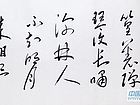 篁裏彈
琴復長嘯
深林人
不知明月
来相